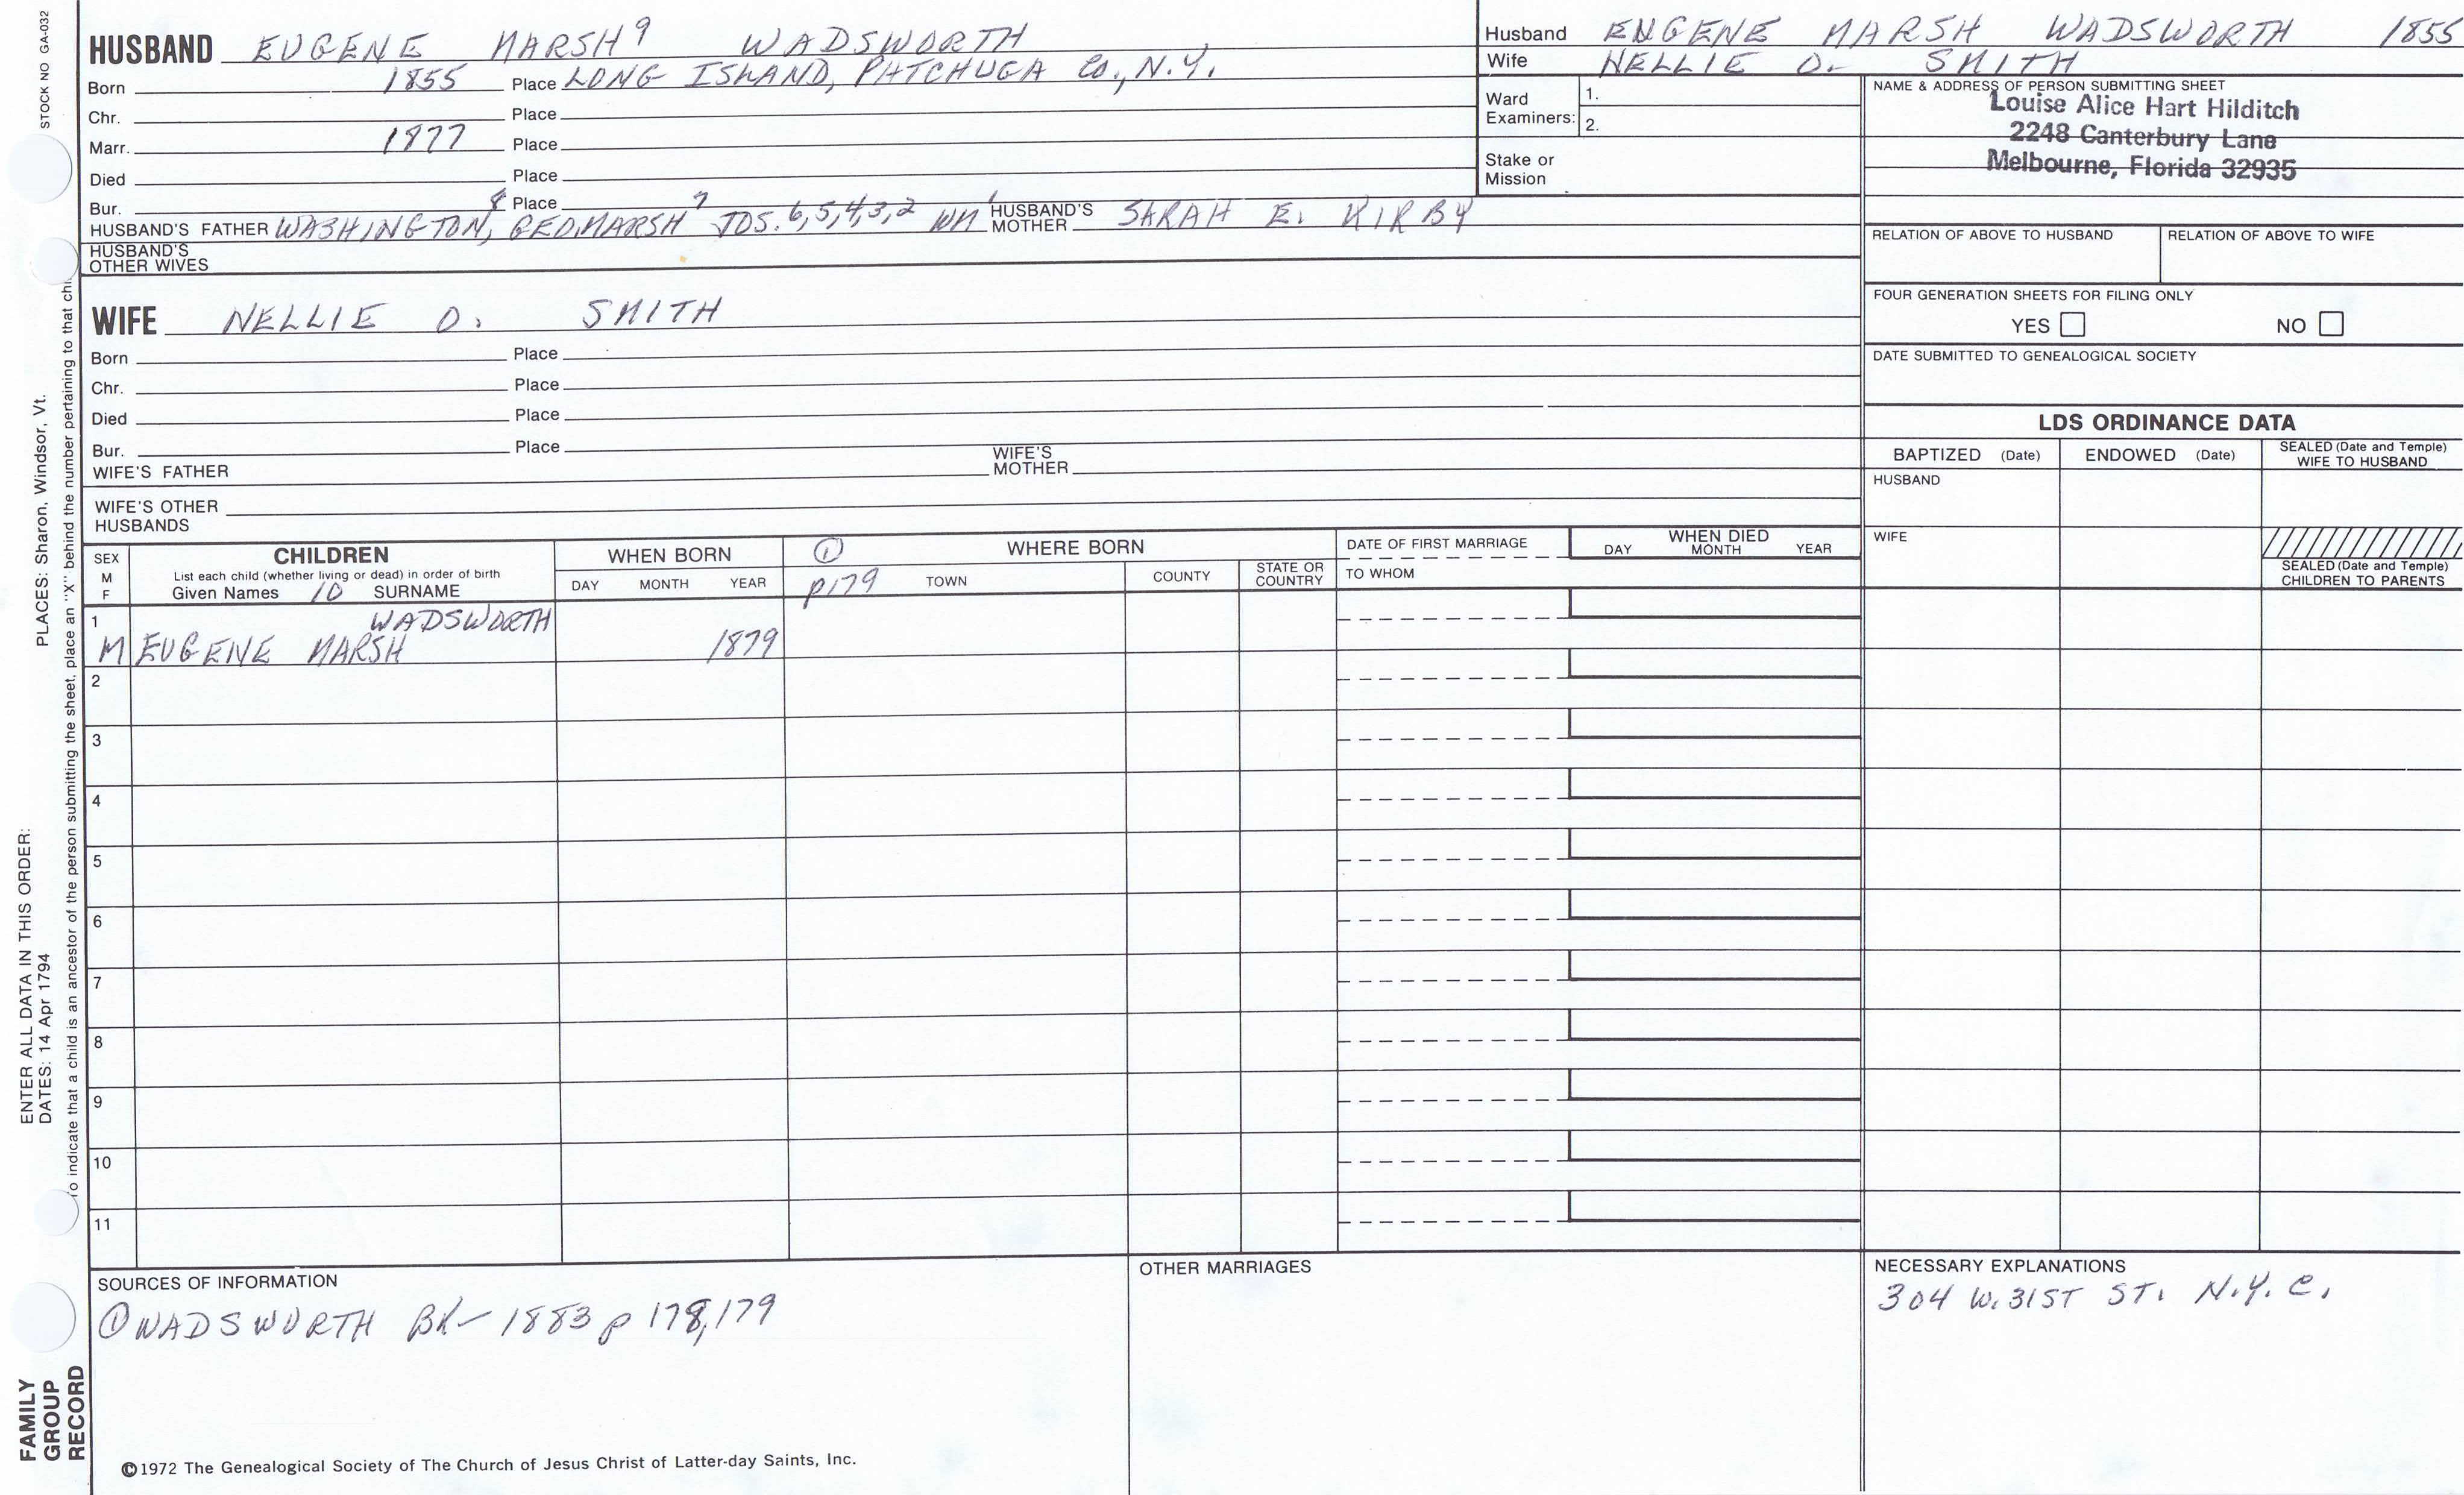 STOCK NO GA-032
HUSBAND EUGENE MARSH⁹ WADSWORTH
Born 1855 Place LONG ISLAND, PATCHUGA CO., N.Y.
Chr. Place
Marr. 1877 Place
Died Place
Bur. Place
HUSBAND'S FATHER WASHINGTON⁸, GEO.MARSH⁷ JOS. 6,5,4,3,2 WM¹ HUSBAND'S MOTHER SARAH E. KIRBY
HUSBAND'S OTHER WIVES
WIFE NELLIE O. SMITH
Born Place
Chr. Place
Died Place
Bur. Place
WIFE'S FATHER WIFE'S MOTHER
WIFE'S OTHER HUSBANDS
Husband EUGENE MARSH WADSWORTH 1855
Wife NELLIE O. SMITH
Ward Examiners: 1.
2.
Stake or Mission
NAME & ADDRESS OF PERSON SUBMITTING SHEET
Louise Alice Hart Hilditch
2248 Canterbury Lane
Melbourne, Florida 32935
RELATION OF ABOVE TO HUSBAND RELATION OF ABOVE TO WIFE
FOUR GENERATION SHEETS FOR FILING ONLY
YES NO
DATE SUBMITTED TO GENEALOGICAL SOCIETY
LDS ORDINANCE DATA
BAPTIZED (Date) ENDOWED (Date) SEALED (Date and Temple) WIFE TO HUSBAND
HUSBAND
WIFE
SEALED (Date and Temple) CHILDREN TO PARENTS
SEX M F
CHILDREN
List each child (whether living or dead) in order of birth
Given Names 10 SURNAME
WHEN BORN
DAY MONTH YEAR
① WHERE BORN
p179 TOWN COUNTY STATE OR COUNTRY
DATE OF FIRST MARRIAGE
TO WHOM
WHEN DIED
DAY MONTH YEAR
1 WADSWORTH
M EUGENE MARSH 1879
2
3
4
5
6
7
8
9
10
11
SOURCES OF INFORMATION
① WADSWORTH BK- 1883 p 178,179
OTHER MARRIAGES
NECESSARY EXPLANATIONS
304 W. 31ST ST. N.Y.C.
©1972 The Genealogical Society of The Church of Jesus Christ of Latter-day Saints, Inc.
FAMILY GROUP RECORD
ENTER ALL DATA IN THIS ORDER:
DATES: 14 Apr 1794 PLACES: Sharon, Windsor, Vt.
To indicate that a child is an ancestor of the person submitting the sheet, place an "X" behind the number pertaining to that chi